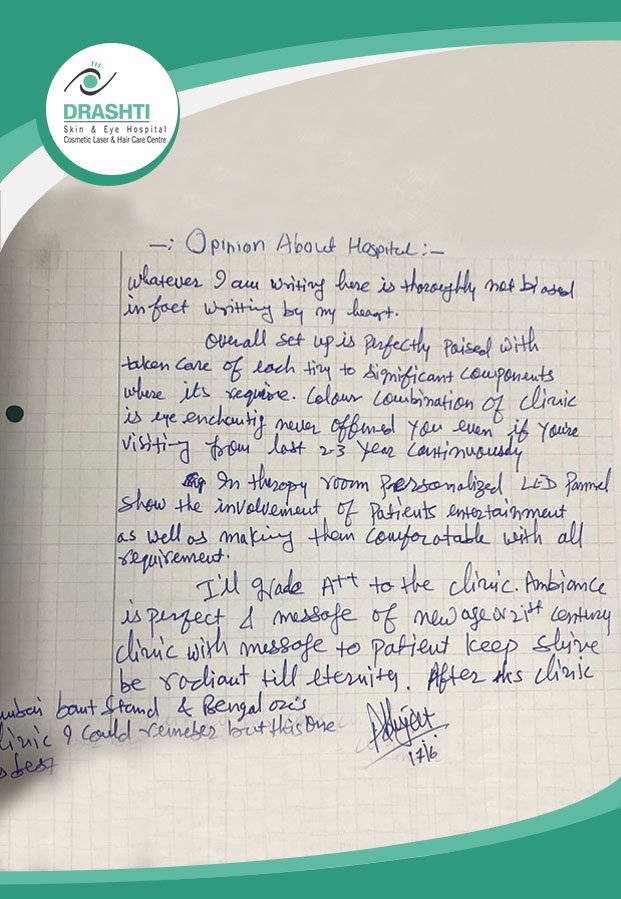 DRASHTI
Skin & Eye Hospital
Cosmetic Laser & Hair Care Centre
—: Opinion About Hospital :—
whatever I am writing here is thoroughly not biased
in fact writting by my heart.
Overall set up is perfectly paised with
taken care of each tiny to significant components
where its require. Colour Combination of clinic
is eye enchantig never offened you even if you're
visiting from last 2-3 year continuously
In therapy room personalized LED Pannel
show the involvement of Patients entertainment
as well as making them comforatable with all
requirement.
I'll grade A++ to the clinic. Ambiance
is perfect & message of new age or 21st century
clinic with message to patient keep shine
be radiant till eternity. After this clinic
bant Stand & Bengalore's
clinic I could remeber but this one
best
17/6